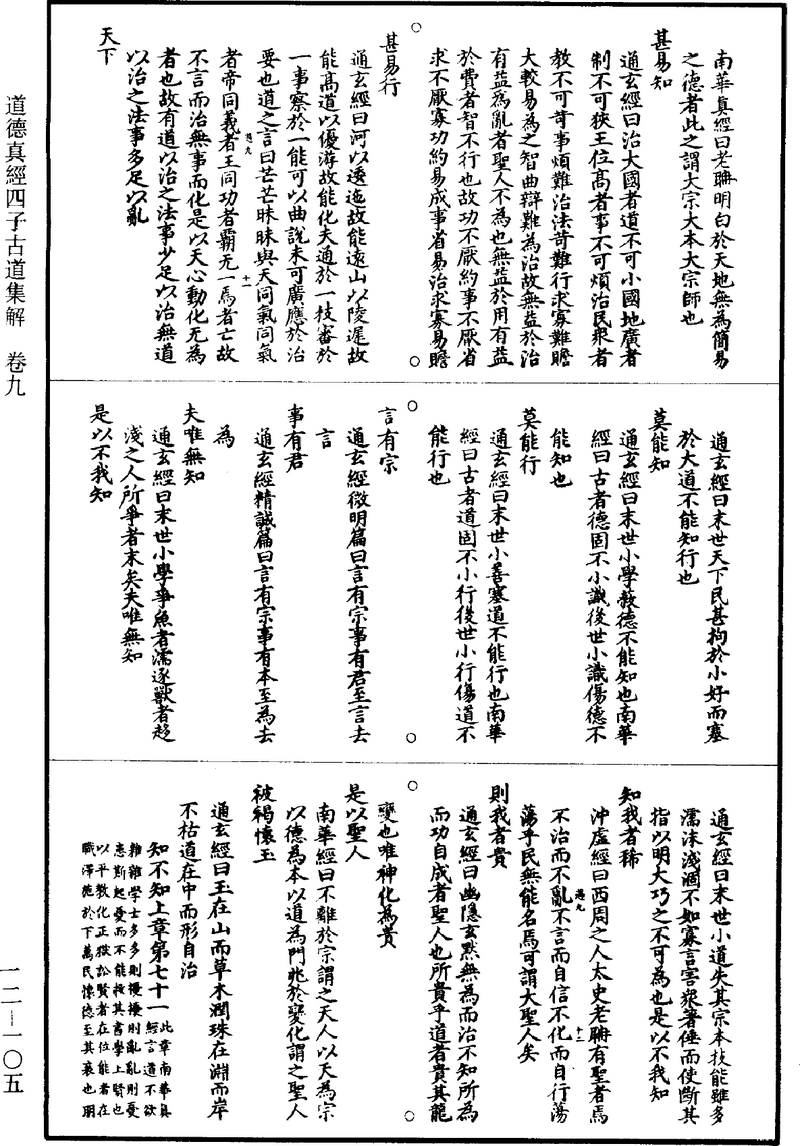 道德真經四子古道集解　卷九
一二—一〇五
南華真經曰老聃明白於天地無為簡易
之德者此之謂大宗大本大宗師也
甚易知
通玄經曰治大國者道不可小國地廣者
制不可狹王位高者事不可煩治民衆者
教不可苛事煩難治法苛難行求寡難贍
大較易為之智曲辯難為治故無益於治
有益為亂者聖人不為也無益於用有益
於費者智不行也故功不厭約事不厭省
求不厭寡功約易成事省易治求寡易贍
甚易行
通玄經曰河以逶迤故能遠山以陵遲故
能高道以優游故能化夫通於一技審於
一事察於一能可以曲說未可廣應於治
要也道之言曰芒芒昧昧與天同氣同氣
者帝同義者王同功者霸无一焉者亡故
不言而治無事而化是以天心動化无為
者也故有道以治之法事少足以治無道
以治之法事多足以亂
天下
通玄經曰末世天下民甚拘於小好而塞
於大道不能知行也
莫能知
通玄經曰末世小學教德不能知也南華
經曰古者德固不小識後世小識傷德不
能知也
莫能行
通玄經曰末世小善塞道不能行也南華
經曰古者道固不小行後世小行傷道不
能行也
言有宗
通玄經微明篇曰言有宗事有君至言去
言
事有君
通玄經精誠篇曰言有宗事有本至為去
為
夫唯無知
通玄經曰末世小學爭魚者濡逐獸者趍
淺之人所爭者末矣夫唯無知
是以不我知
通玄經曰末世小道失其宗本技能雖多
濡沫淺涸不如寡言害衆著倕而使斷其
指以明大巧之不可為也是以不我知
知我者稀
沖虛經曰西周之人太史老聃有聖者焉
不治而不亂不言而自信不化而自行蕩
蕩乎民無能名焉可謂大聖人矣
則我者貴
通玄經曰幽隱玄默無為而治不知所為
而功自成者聖人也所貴乎道者貴其龍
變也唯神化為貴
是以聖人
南華經曰不離於宗謂之天人以天為宗
以德為本以道為門兆於變化謂之聖人
被褐懷玉
通玄經曰玉在山而草木潤珠在淵而岸
不枯道在中而形自治
知不知上章第七十一
此章南華真
經言道不欲
雜雜學士多多則擾擾則亂亂則憂
以平教化正獄訟賢者在位能者在
職澤施於下萬民懷德至其衰也朋